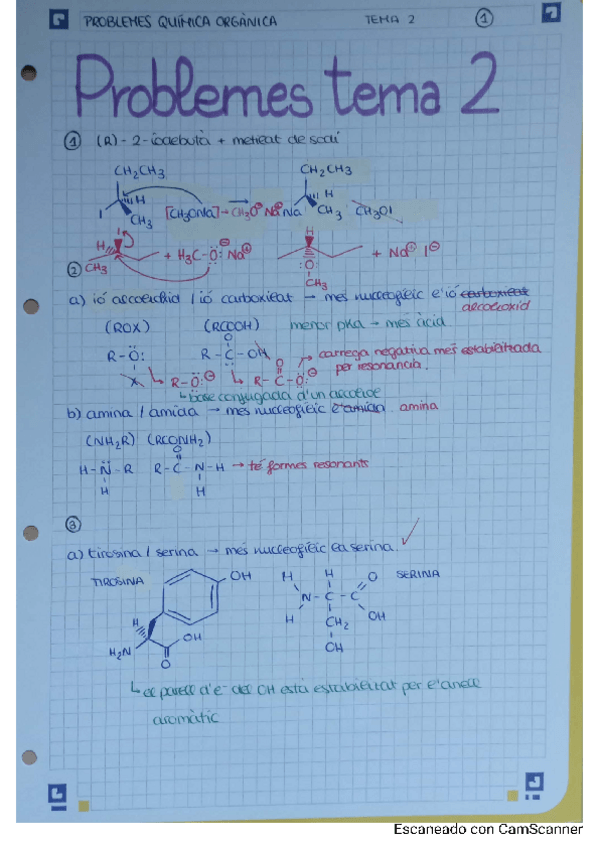 PROBLEMES QUÍMICA ORGÀNICA TEMA 2 1
Problemes tema 2
1 (R)-2-iodebutà + metileat de sodi
CH2CH3 CH2CH3
H H
I CH3 [CH3ONa] → CH3O⊖ Na⊕ Na CH3 CH3OI
H I + H3C-O:⊖ Na⊕ H + Na⊕ I⊖
CH3 :O:
CH3
2
a) ió alcoòxid / ió carboxilat → més nucleofílic l'ió carboxilat
alcoòxid
(ROX) (RCOOH) menor pKa → més àcid.
R-O: R-C-OH O → càrrega negativa més estabilitzada
per resonància.
X R-O:⊖ R-C-O:⊖
base conjugada d'un alcohol
b) amina / amida → més nucleofílic l'amida amina
(NH2R) (RCONH2)
O
H-N-R R-C-N-H → té formes resonants
H H
3
a) tirosina / serina → més nucleofílic la serina. ✓
TIROSINA OH H H O SERINA
N-C-C
H H CH2 OH
H2N OH OH
O
el parell d'e- del OH està estabilitzat per l'anell
aromàtic
Escaneado con CamScanner